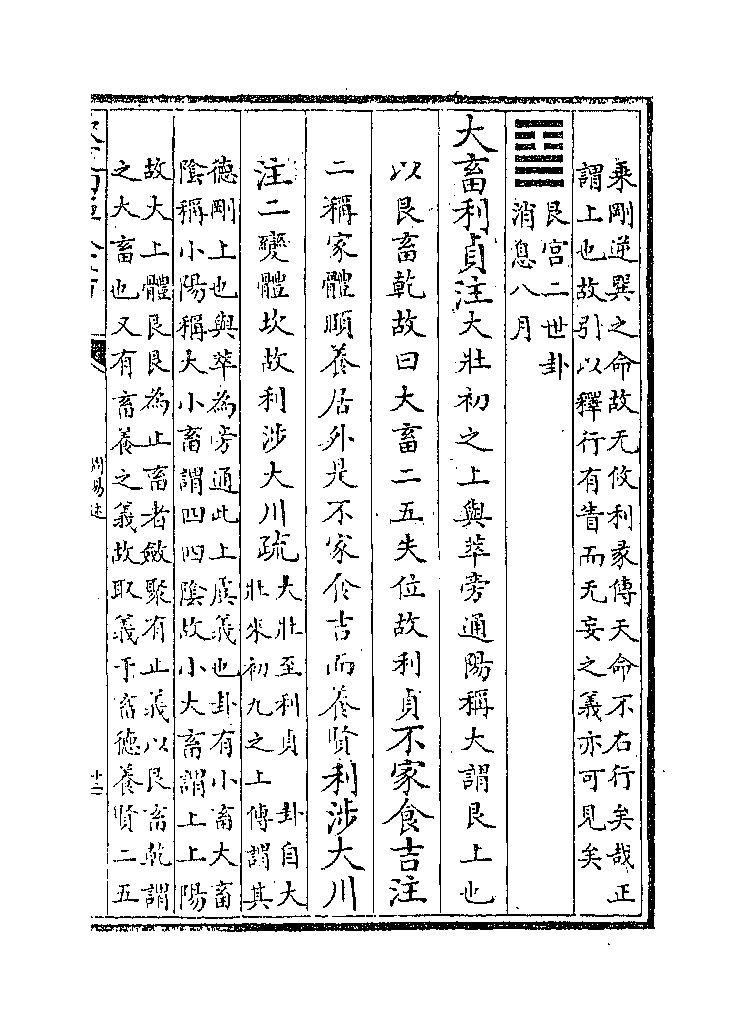 乘剛逆巽之命故无攸利彖傳天命不右行矣哉正
謂上也故引以釋行有眚而无妄之義亦可見矣
艮宫二世卦
消息八月
大畜利貞注大壯初之上與萃旁通陽稱大謂艮上也
以艮畜乾故曰大畜二五失位故利貞不家食吉注
二稱家體頤養居外是不家食吉而養賢利涉大川
注二變體坎故利涉大川疏
大壯至利貞 卦自大
壯來初九之上傳謂其
德剛上也與萃為旁通此上虞義也卦有小畜大畜
陰稱小陽稱大小畜謂四四陰故小大畜謂上上陽
故大上體艮艮為止畜者斂聚有止義以艮畜乾謂
之大畜也又有畜養之義故取義于畜德養賢二五
周易述
十二